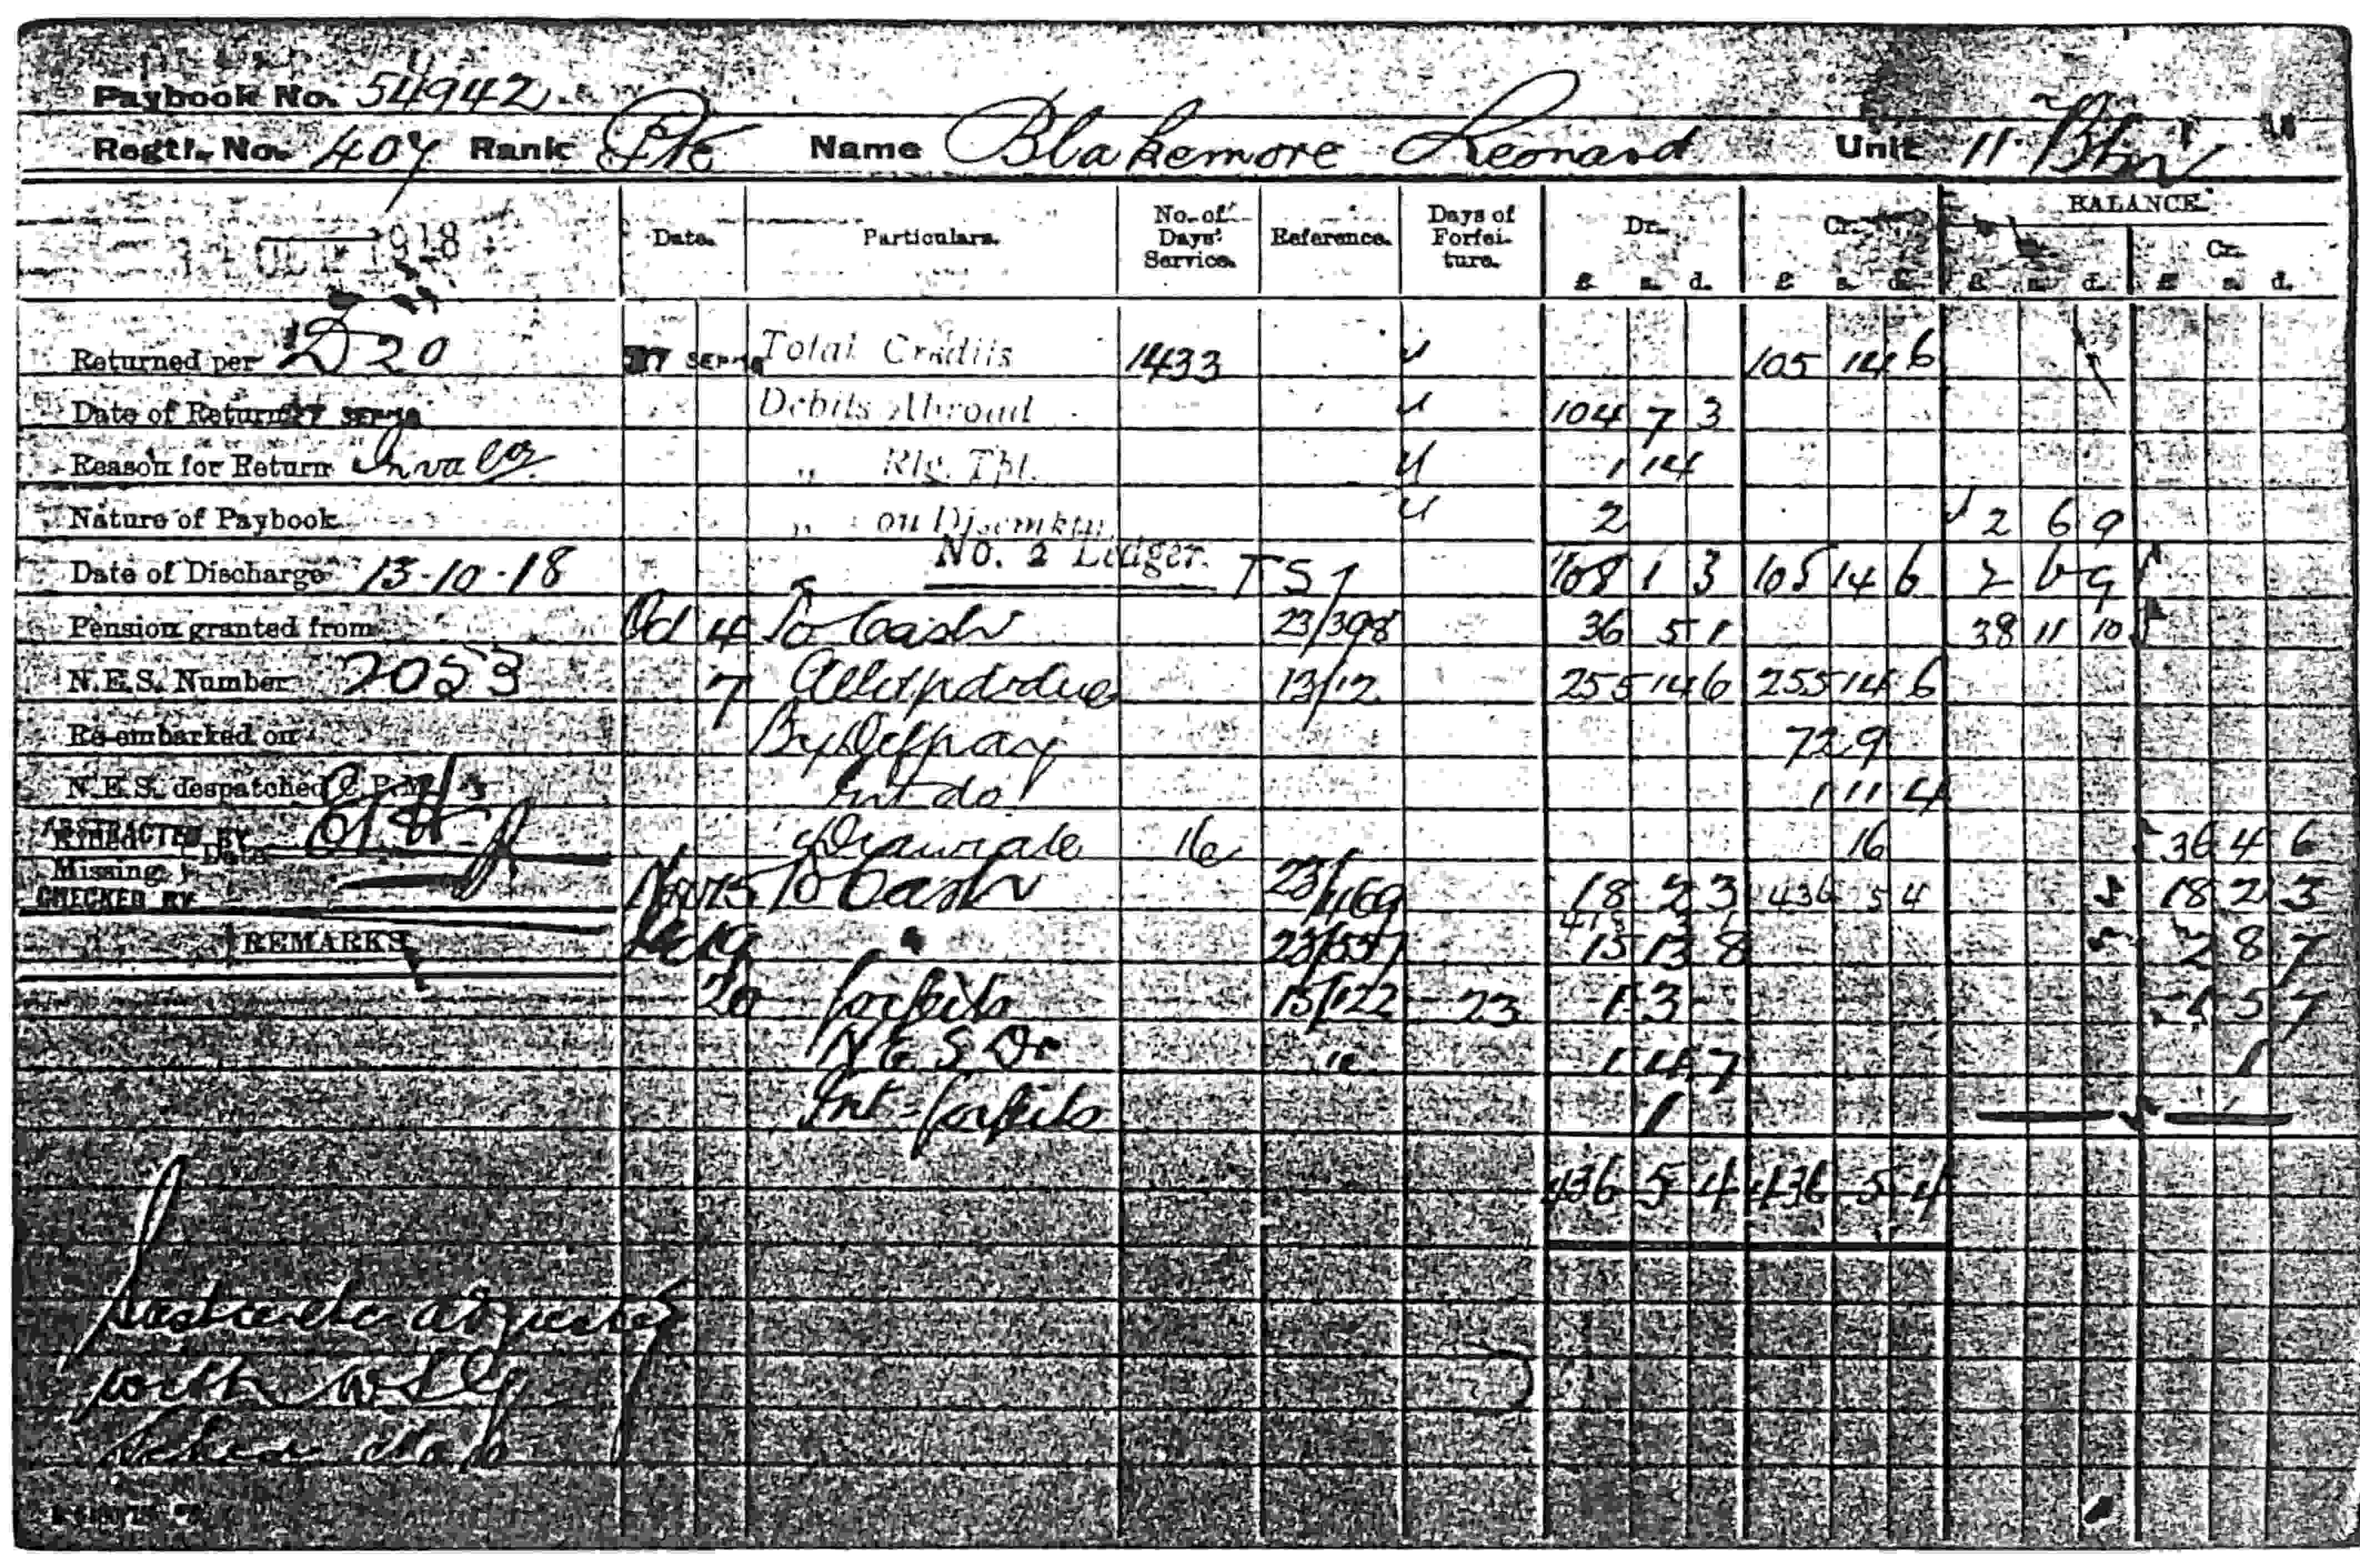 Paybook No. 54942
Regtl. No. 407 Rank Pte Name Blakemore Leonard Unit 11 Btn
1918
Date. Particulars. No. of Days' Service. Reference. Days of Forfeiture. Dr. £ s. d. Cr. £ s. d. BALANCE. £ s. d. Cr. £ s. d.
Returned per D20 Total Credits 1433 105 14 6
Date of Return Debits Abroad 104 7 3
Reason for Return " Rlg. Tpt. 1 14
Nature of Paybook " on Disemktn. 2 2 6 9
Date of Discharge 13-10-18 No. 2 Ledger. 108 1 3 105 14 6 2 6 9
Pension granted from Oct 4 To Cash 23/398 36 5 1 38 11 10
N.E.S. Number 2053 7 13/12 255 14 6 255 14 6
Re-embarked on By Def pay 72 9
N.E.S. despatched C.P.M. Int do 1 11 4
ABSTRACTED BY Date 16 16 36 4 6
Missing
CHECKED BY Nov 15 To Cash 23/469 18 2 3 436 5 4 18 2 3
REMARKS Dec 19 " 23/557 15 13 8 2 8 7
20 forfeits 15/122 23 1 3 1 5 7
N E S Dr " 1 4 7 1
Int forfeits 1
436 5 4 436 5 4
with